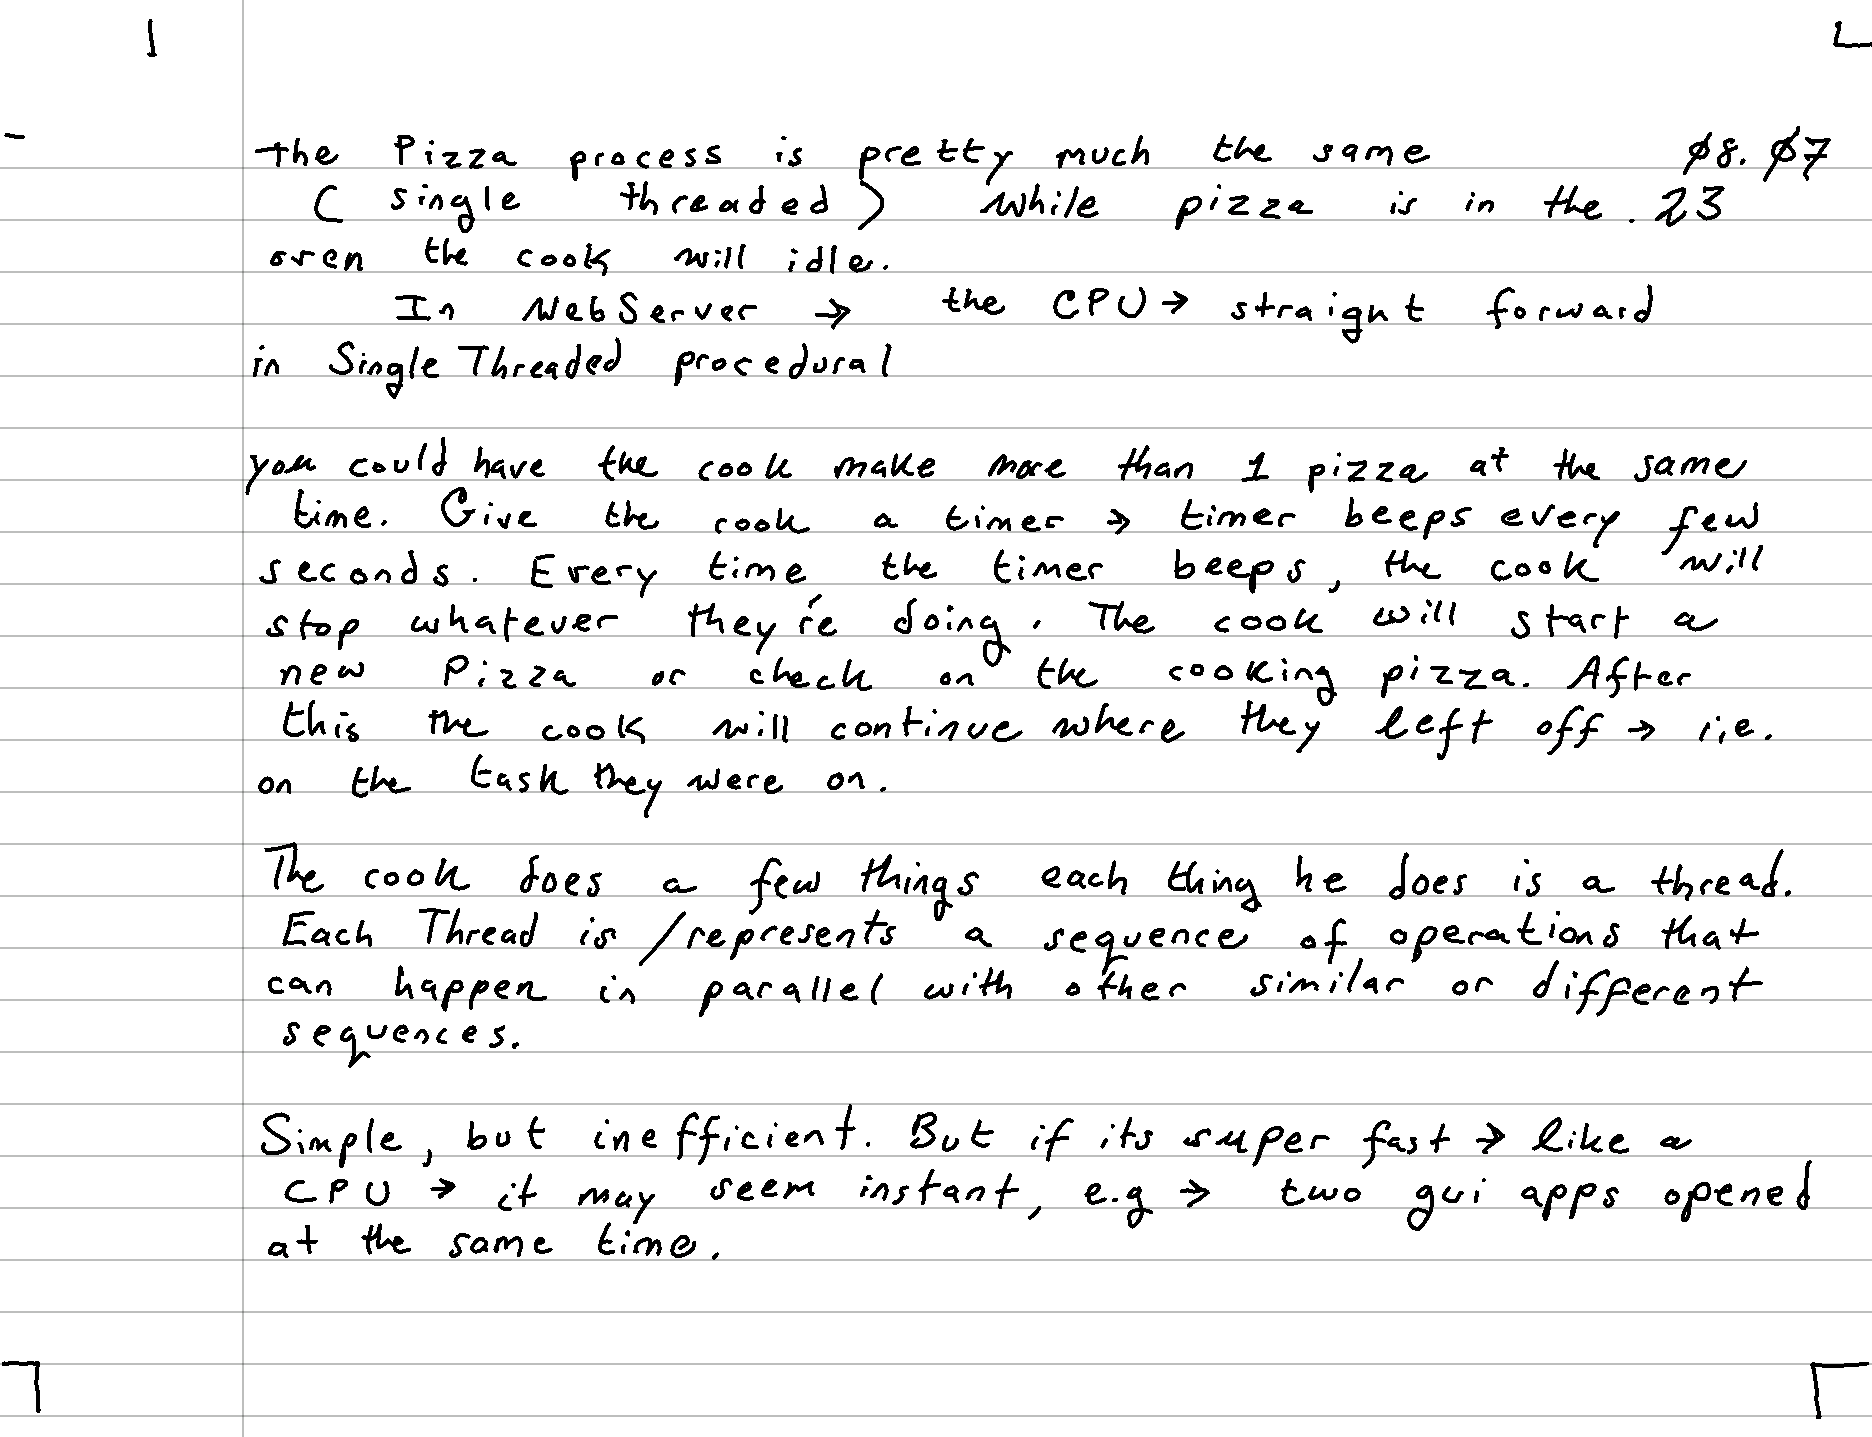 The Pizza process is pretty much the same 08.07
( single threaded ) While pizza is in the .23
oven the cook will idle.
In WebServer → the CPU → straight forward
in Single Threaded procedural
you could have the cook make more than 1 pizza at the same
time. Give the cook a timer → timer beeps every few
seconds. Every time the timer beeps, the cook will
stop whatever they're doing. The cook will start a
new Pizza or check on the cooking pizza. After
this the cook will continue where they left off → i.e.
on the task they were on.
The cook does a few things each thing he does is a thread.
Each Thread is /represents a sequence of operations that
can happen in parallel with other similar or different
sequences.
Simple, but inefficient. But if its super fast → like a
CPU → it may seem instant, e.g → two gui apps opened
at the same time.